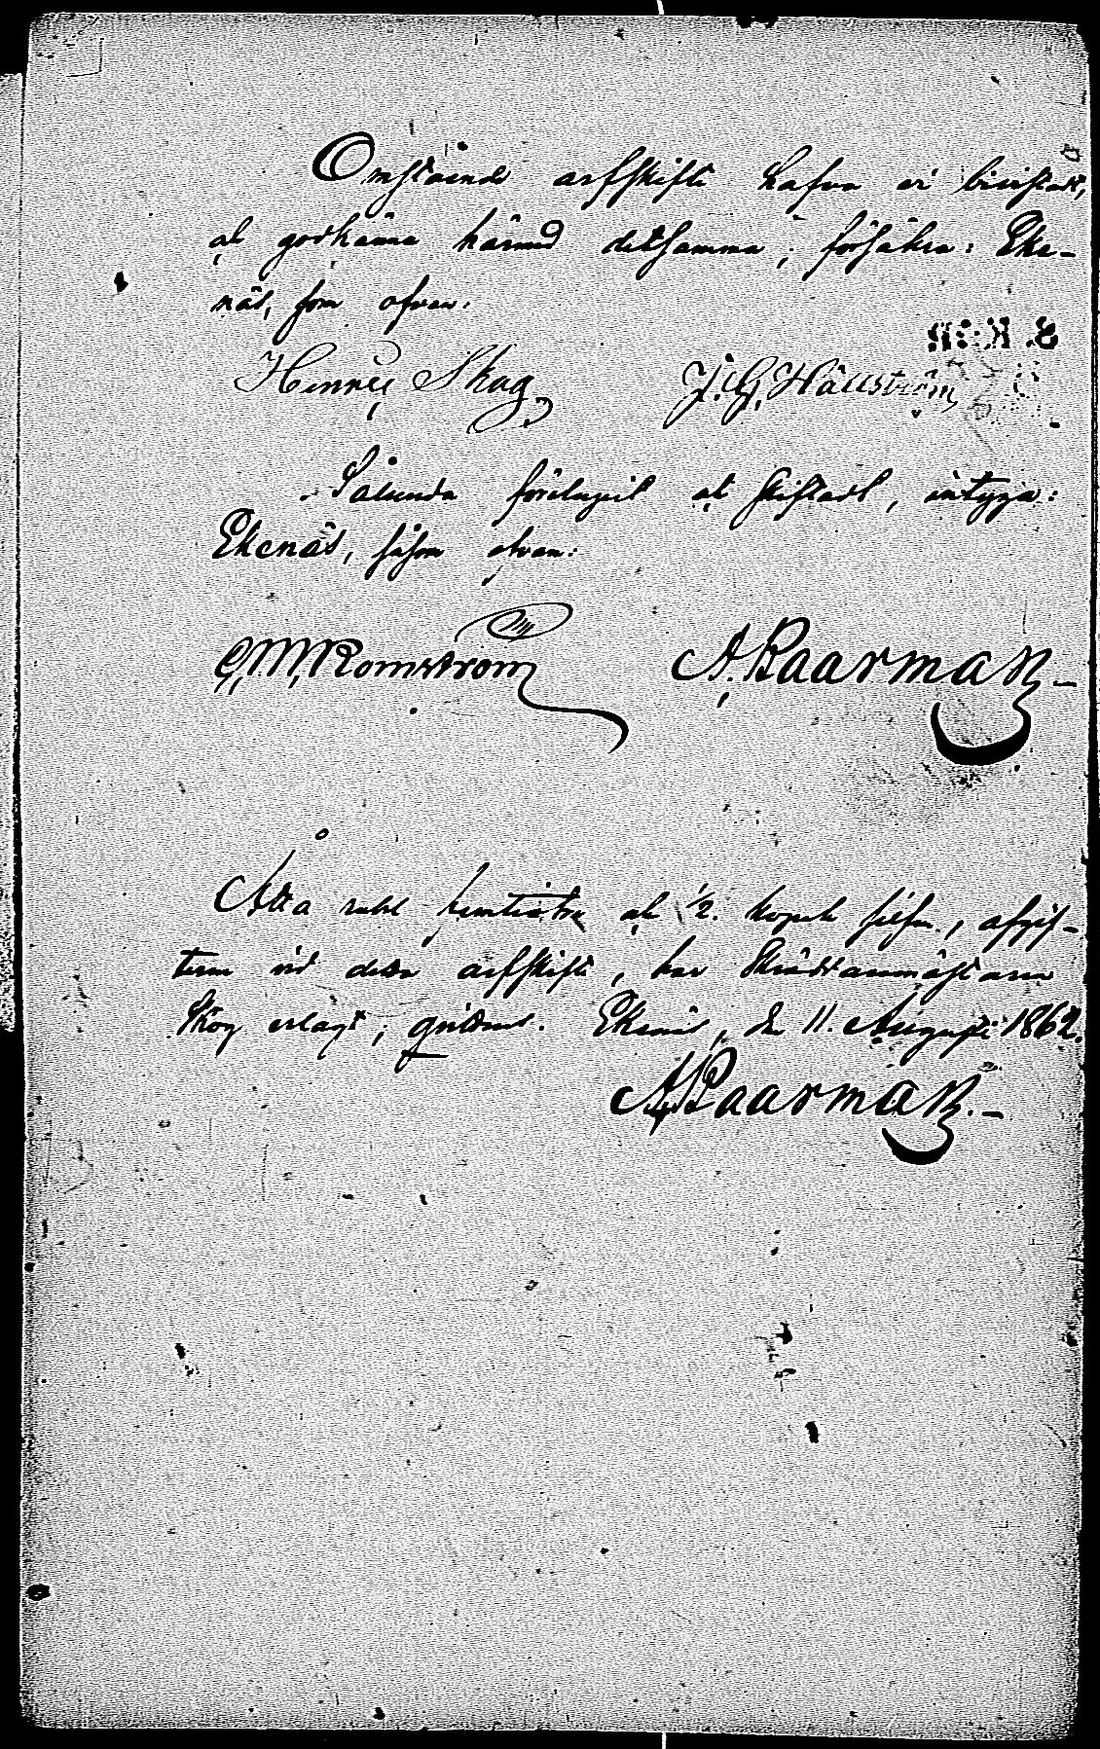 Omstående arfskifte hafva vi bivistat,
ock godkänna härmed detsamma, försäkra: Eke-
näs, som ofvan.
Henric Skog J. G. Hällström
Sålunda förelupit ock skiftadt, intyga:
Ekenäs, såsom ofvan:
G. M. Romström A. Baarman
Åtta rubel femtiotre ock 1/2. kopek silfver, afgif-
terne vid detta arfskifte, har Skräddaremästaren
Skog erlagt, qvitteras. Ekenäs, den 11. Augusti 1862.
A. Baarman.